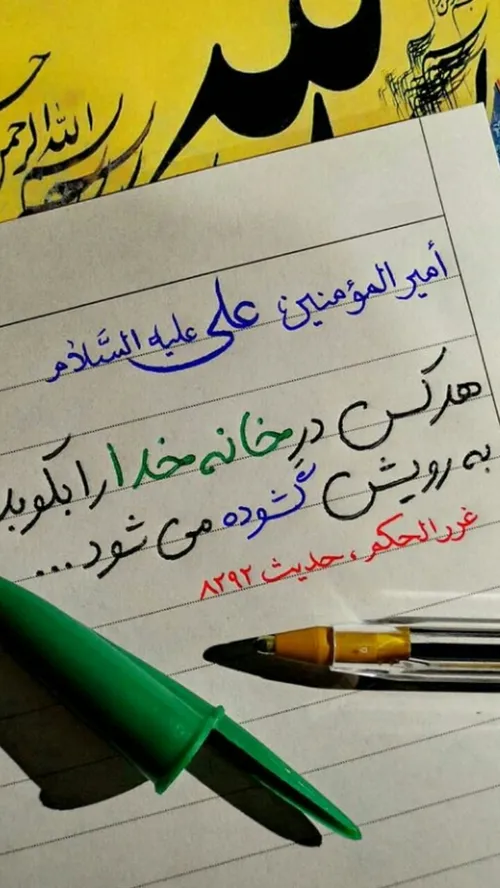 الله
الله الرحمن
أمير المؤمنین علی علیه السَّلام
هرکس درِ خانه خدا را بکوبد
به رویش گشوده می شود...
غررالحکم، حدیث ۸۲۹۲